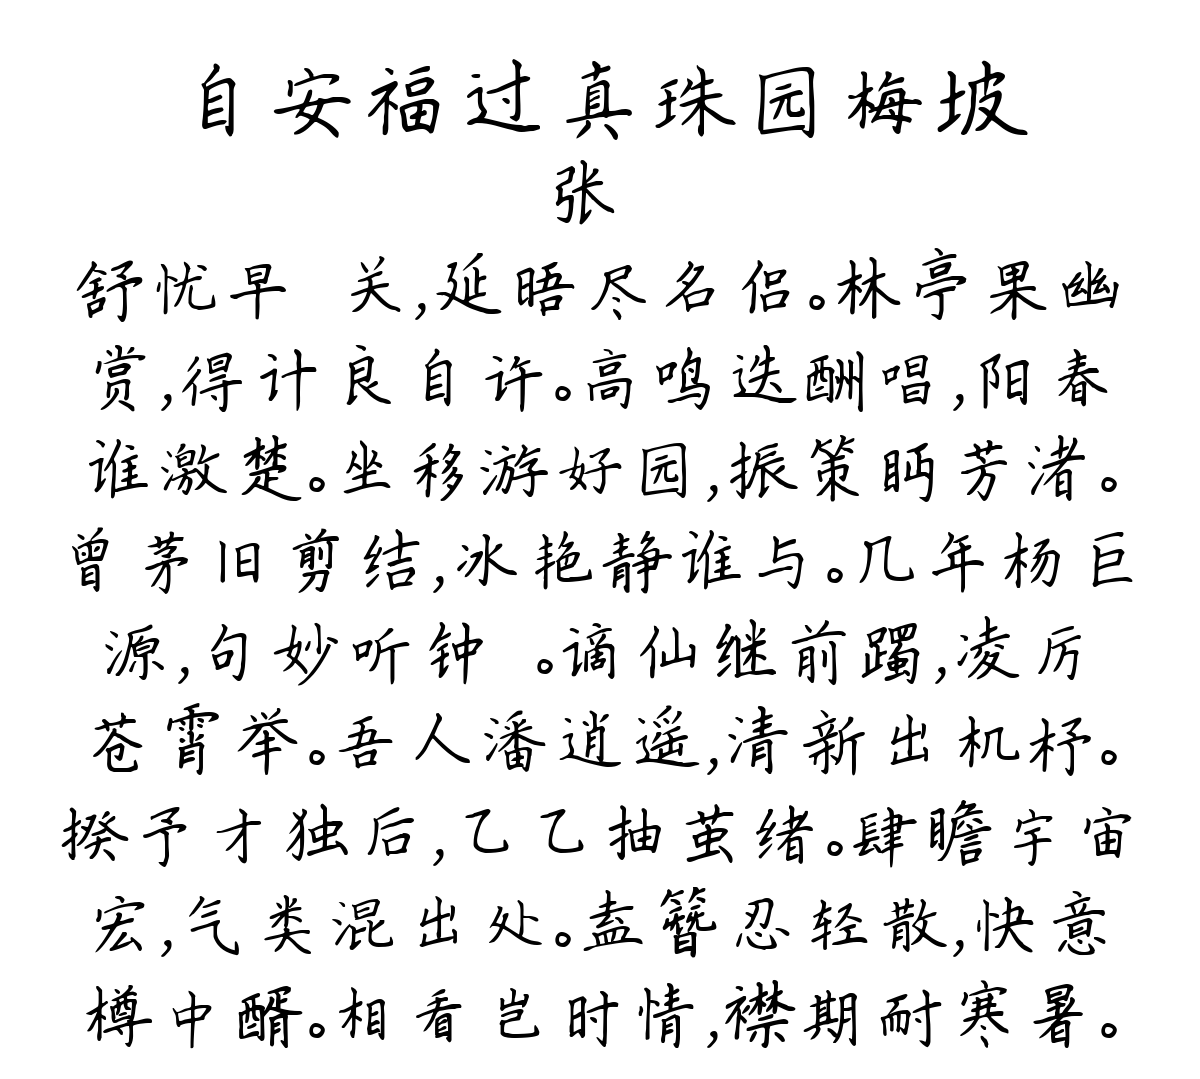 自安福过真珠园梅坡
张
舒忧早 关,延晤尽名侣。林亭果幽
赏,得计良自许。高鸣迭酬唱,阳春
谁激楚。坐移游好园,振策眄芳渚。
曾茅旧剪结,冰艳静谁与。几年杨巨
源,句妙听钟 。谪仙继前躅,凌厉
苍霄举。吾人潘逍遥,清新出机杼。
揆予才独后,乙乙抽茧绪。肆瞻宇宙
宏,气类混出处。盍簪忍轻散,快意
樽中醑。相看岂时情,襟期耐寒暑。